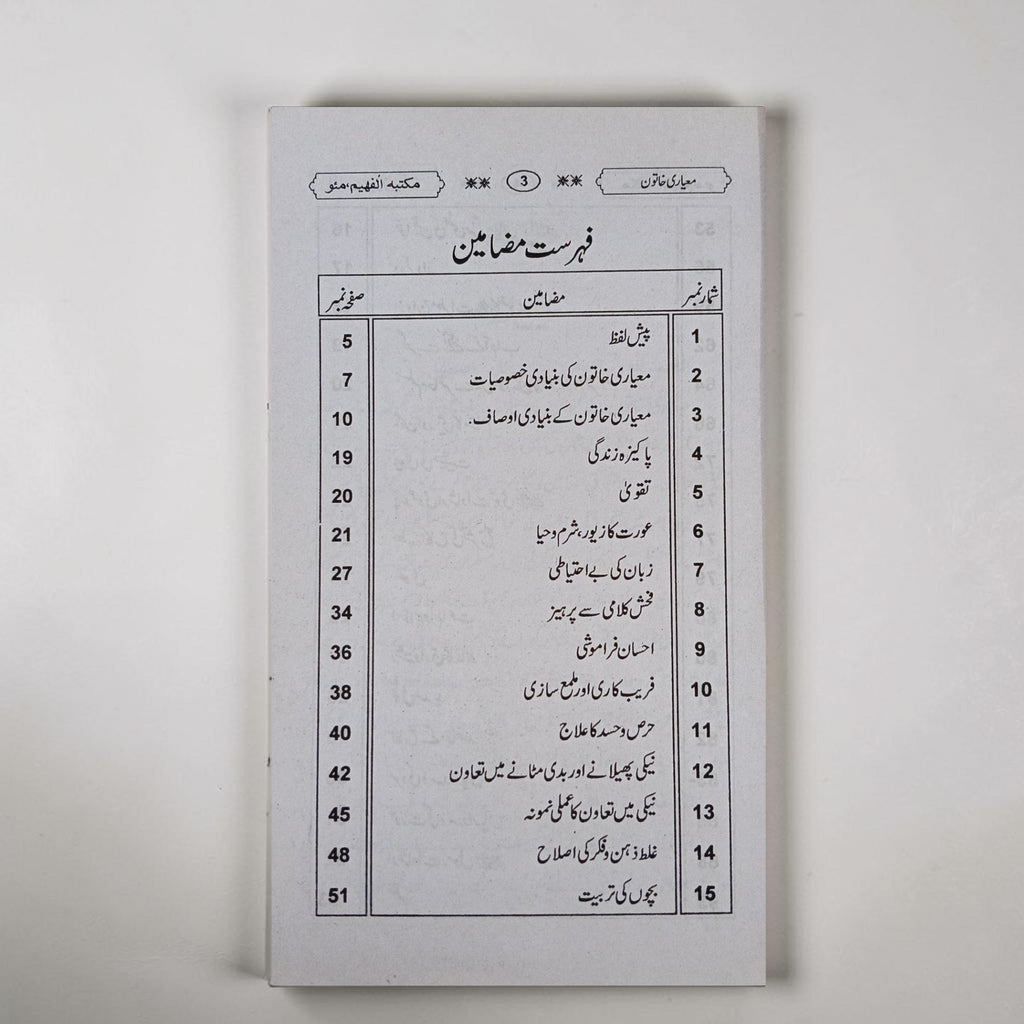 معیاری خاتون 3 مکتبہ الفہیم،مئو
فہرست مضامین
شمار نمبر مضامین صفحہ نمبر
1 پیش لفظ 5
2 معیاری خاتون کی بنیادی خصوصیات 7
3 معیاری خاتون کے بنیادی اوصاف. 10
4 پاکیزہ زندگی 19
5 تقویٰ 20
6 عورت کا زیور، شرم وحیا 21
7 زبان کی بے احتیاطی 27
8 فحش کلامی سے پرہیز 34
9 احسان فراموشی 36
10 فریب کاری اور ملمع سازی 38
11 حرص وحسد کا علاج 40
12 نیکی پھیلانے اور بدی مٹانے میں تعاون 42
13 نیکی میں تعاون کا عملی نمونہ 45
14 غلط ذہن وفکر کی اصلاح 48
15 بچوں کی تربیت 51